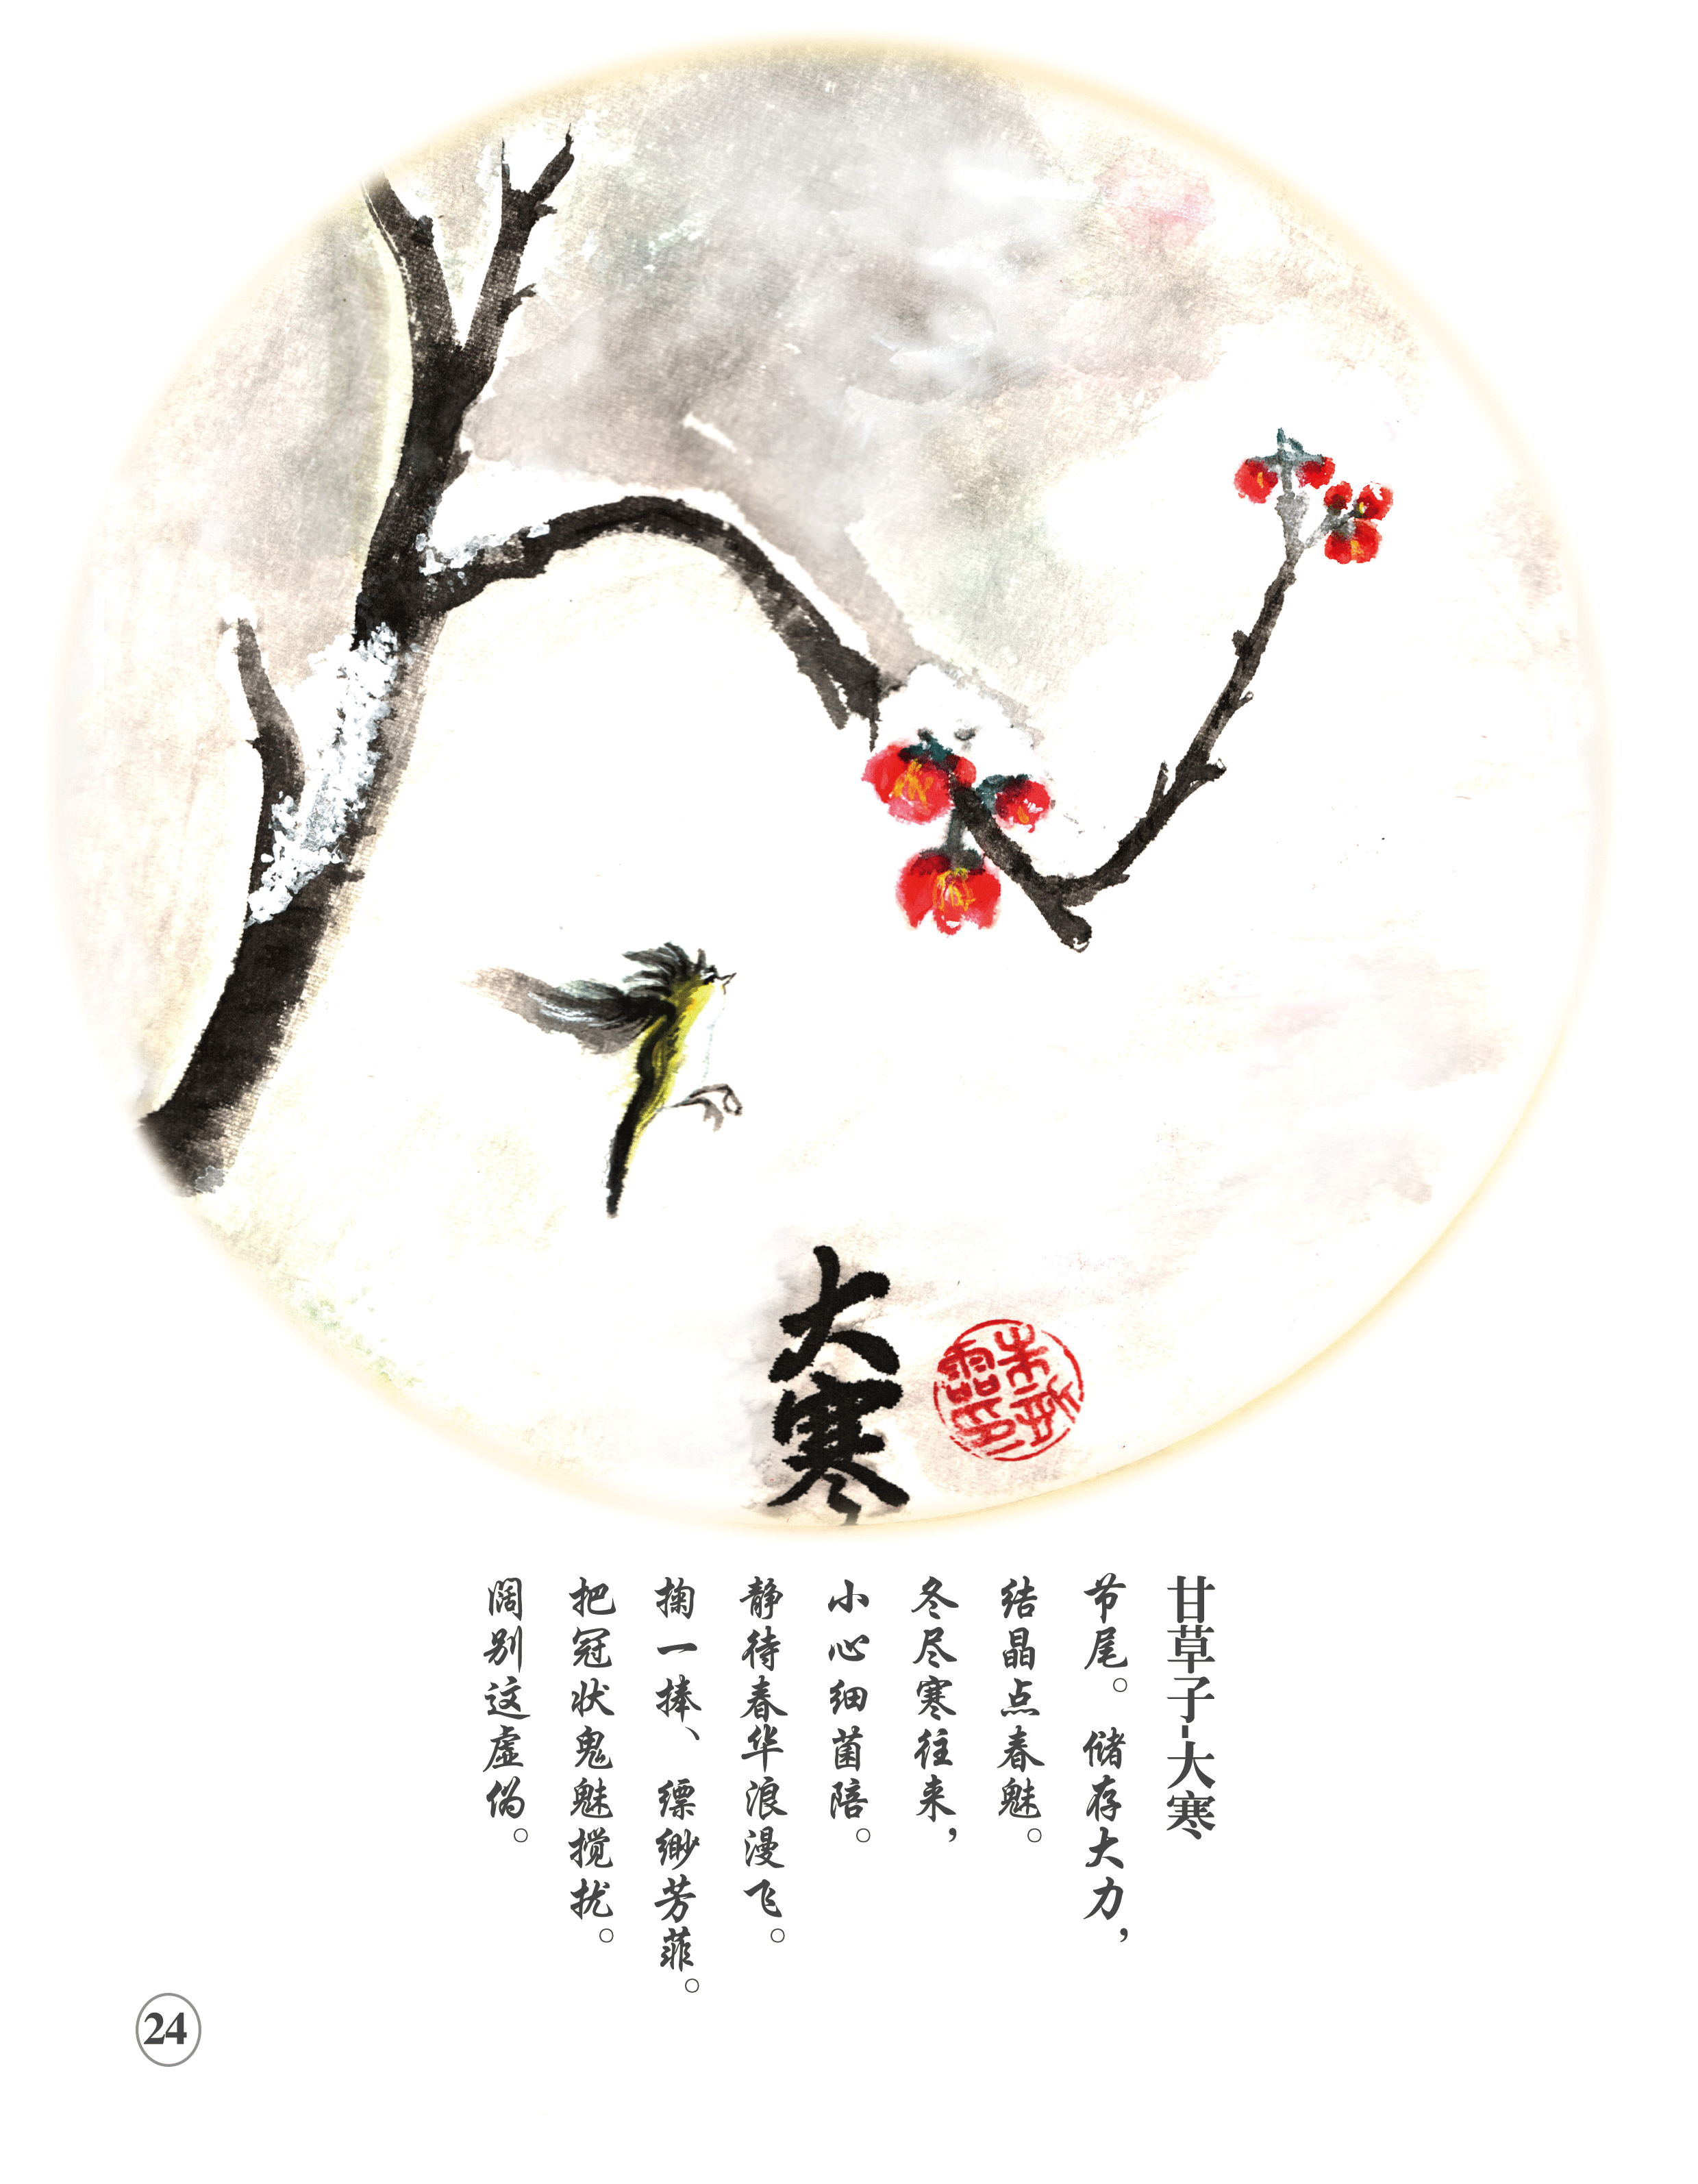 大寒
甘草子-大寒
节尾。储存大力，
结晶点春魅。
冬尽寒往来，
小心细菌陪。
静待春华浪漫飞。
掬一捧、缥缈芳菲。
把冠状鬼魅搅扰。
阔别这虚伪。
24